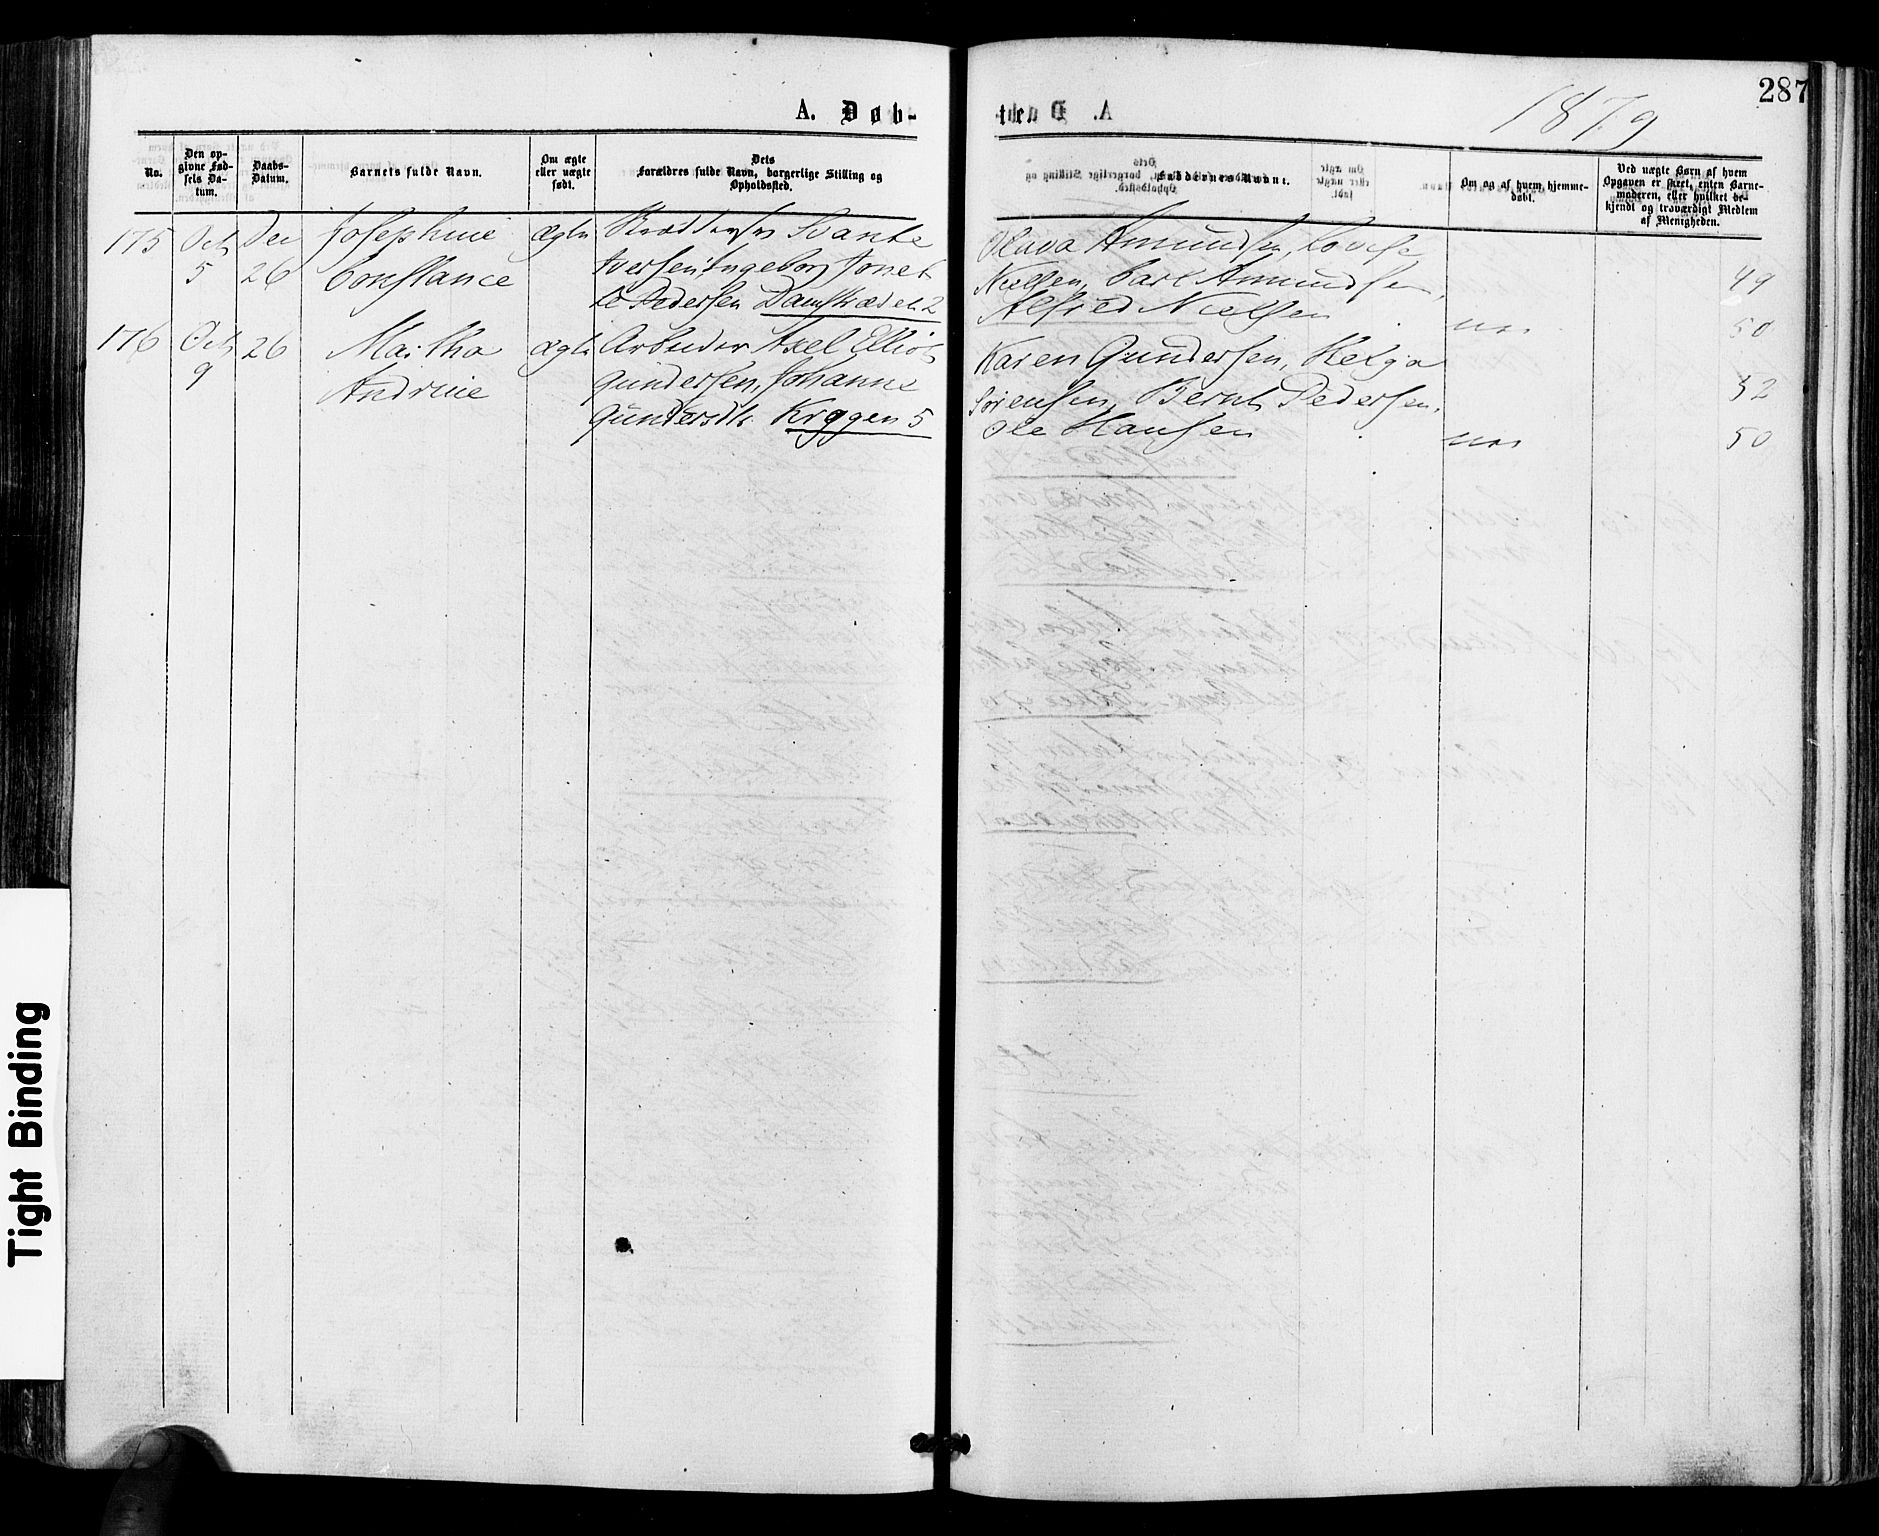 A. Døb-
No.
Den op-
givne Fød-
sels Da-
tum.
Daabs-
Datum.
Barnets fulde Navn.
Om ægte
eller uægte
født.
Dets
Forældres fulde Navn, borgerlige Stilling og
Opholdssted.
175 Oct Dec Josephine ægte Svante
5 26 Constance Iversen Ingeborg
Pedersen Damstrædet 2
176 Oct 26 Martha ægte Arbeider Axel
9 Andrine Gundersen, Johanne
Gundersdtr. Kroggen 5
287
te. 1879
Faddernes Navne.
Om og af hvem hjemme-
døbt.
Ved uægte Børn af hvem
Opgaven er skeet, enten Barne-
moderen, eller hvilket be-
kjendt og troværdigt Medlem
af Menigheden.
Olava Amundsen, Lovise
Nielsen, Carl Amundsen, 49
Alfred Nielsen 50
Karen Gundersen, Helga
Sørensen, Bernt Pedersen, 52
Ole Hansen 50
Tight Binding